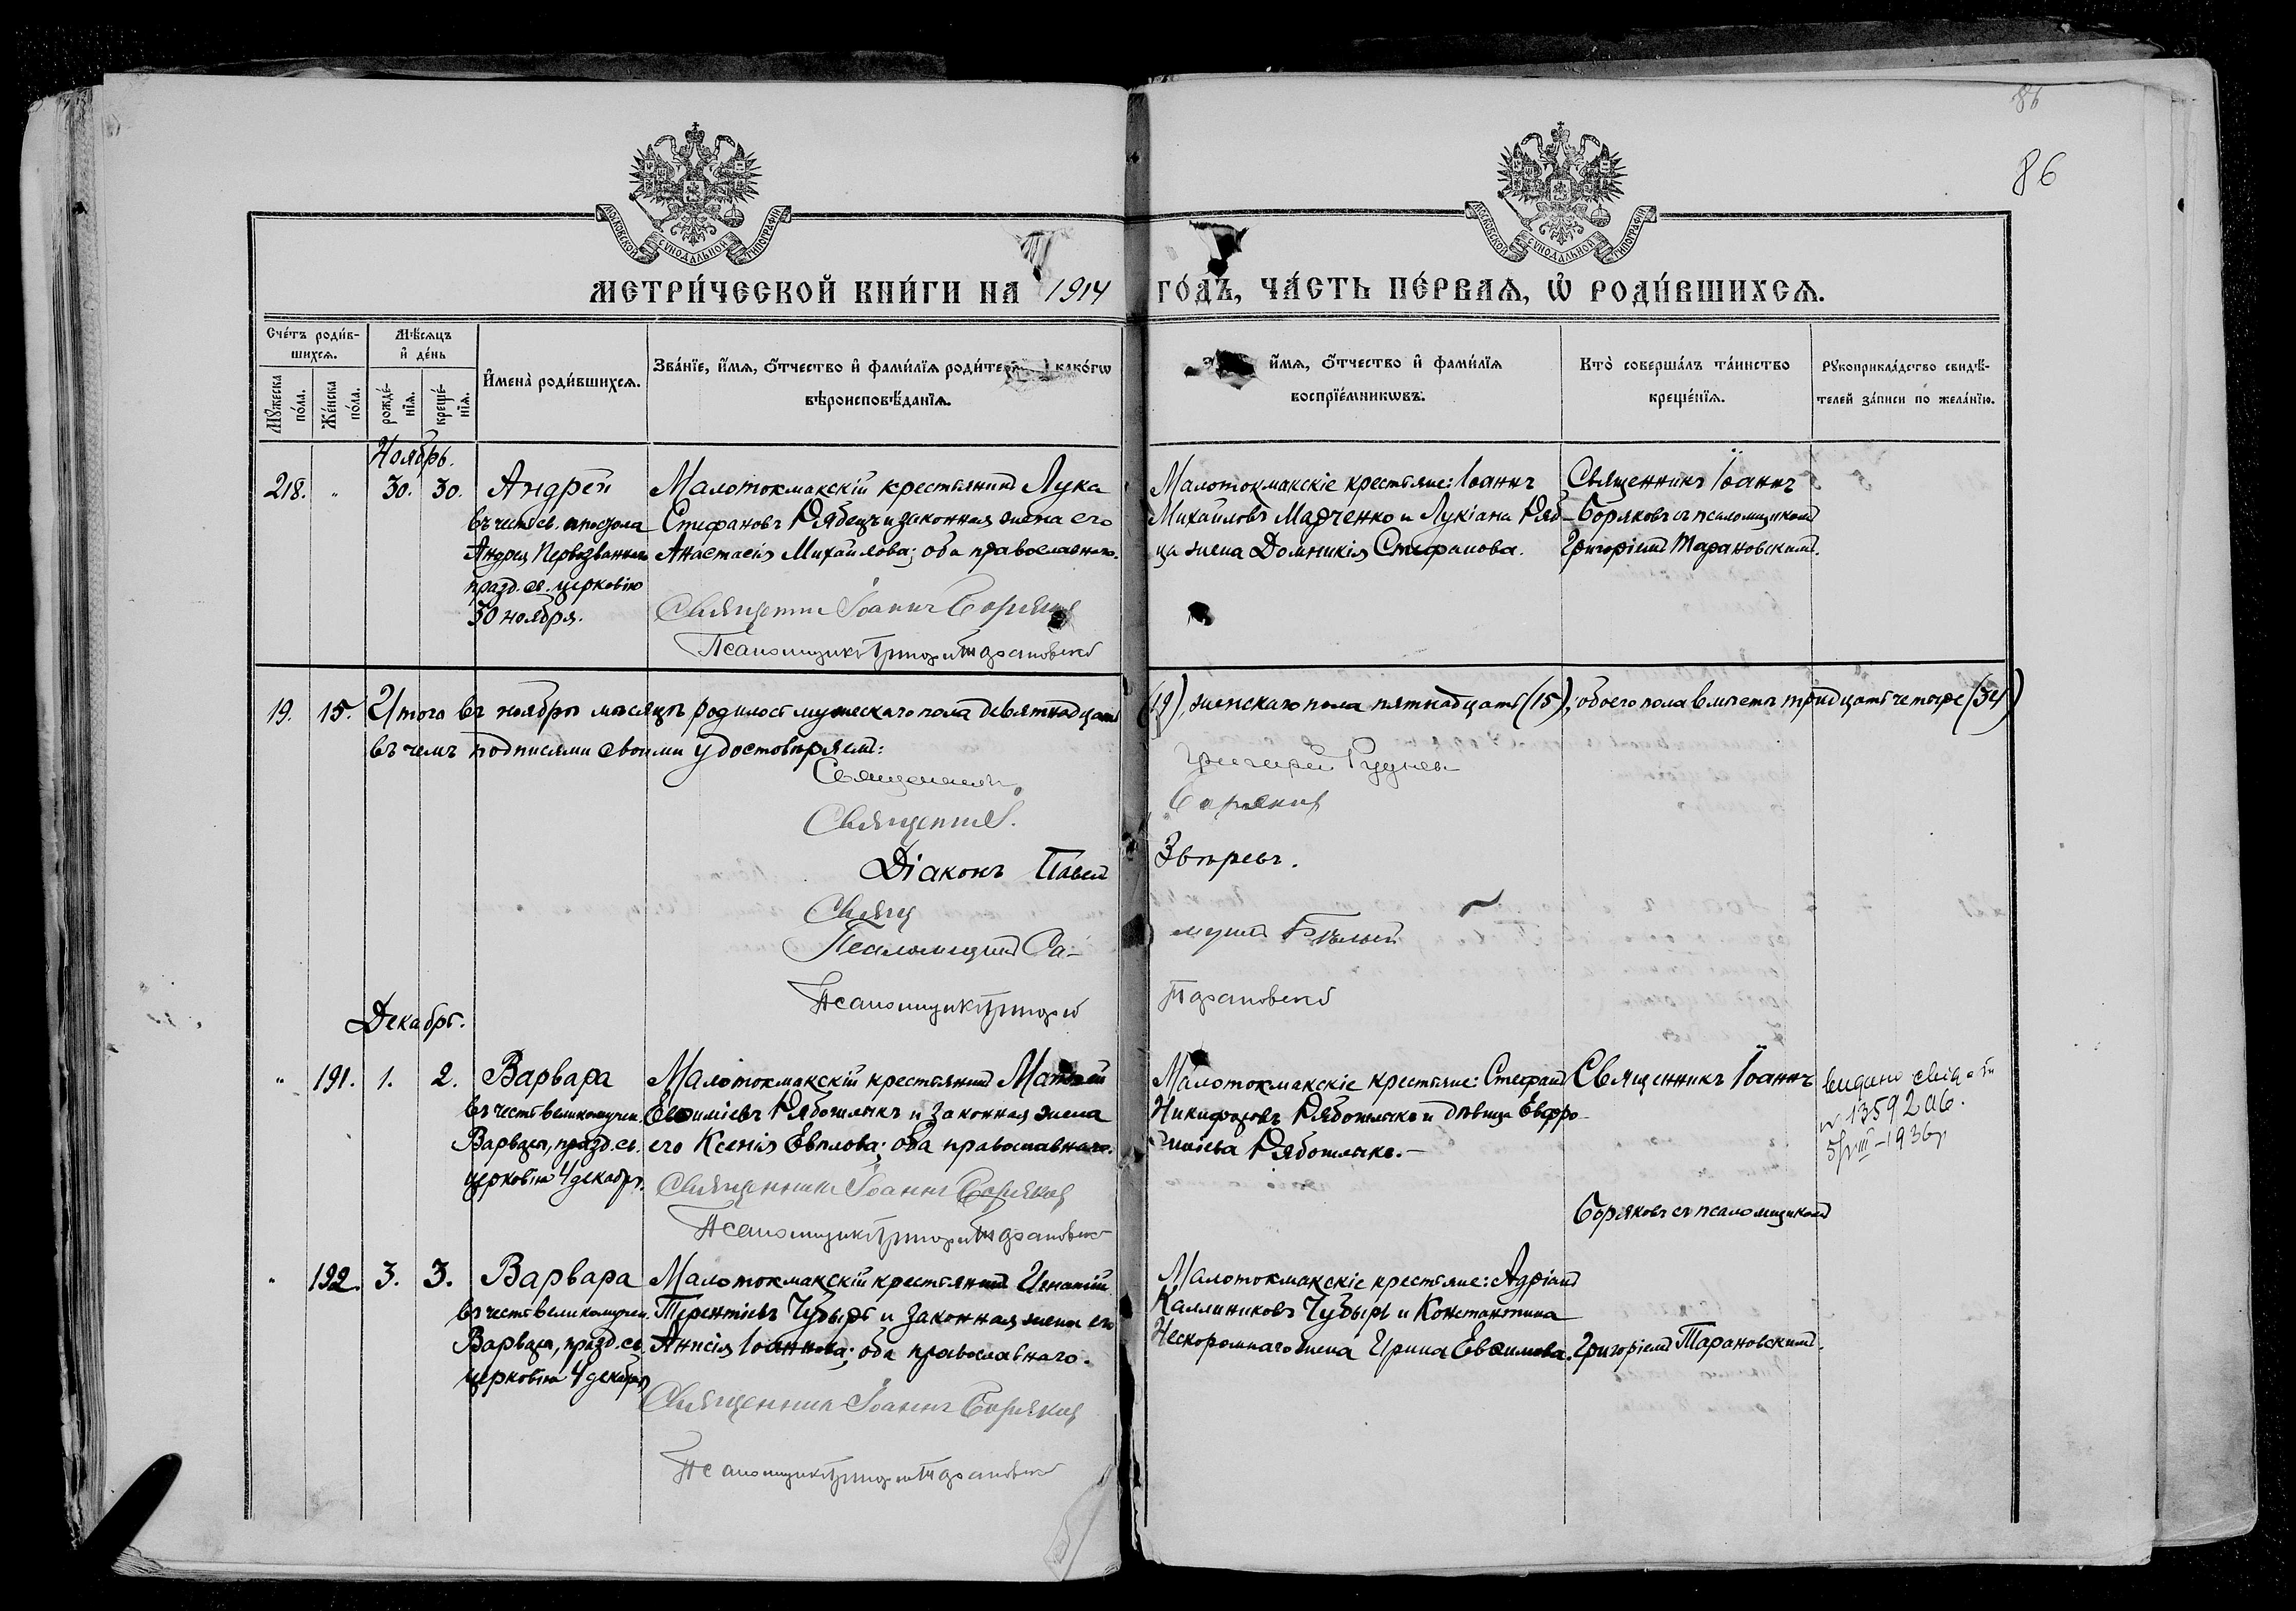 86
86
МОСКОВСКОЙ СѴНОДАЛЬНОЙ ТИПОГРАФІИ
МОСКОВСКОЙ СѴНОДАЛЬНОЙ ТИПОГРАФІИ
МЕТРИ́ЧЕСКОЙ КНИ́ГИ НА 1914 ГО́ДЪ, ЧА́СТЬ ПЕ́РВАѦ, Ѡ҆ РОДИ́ВШИХСѦ.
Сче́тъ роди́в-
шихсѧ.
Мꙋ́жеска
по́ла.
Же́нска
по́ла.
Мѣ́сѧцъ
и҆ де́нь
рожде́-
нїѧ.
креще́-
нїѧ.
И҆мена̀ роди́вшихсѧ.
Зва́нїе, и҆́мѧ, ѻ҆́тчество и҆ фами́лїѧ како́гѡ
вѣроисповѣ́данїѧ.
и҆́мѧ, ѻ҆́тчество и҆ фами́лїѧ
воспрїе́мникѡвъ.
Кто̀ соверша́лъ та́инство
креще́нїѧ.
Рꙋкоприкла́дство свидѣ́-
телей за́писи по жела́нїю.
Ноябрь.
218. " 30. 30. Андрей
въ честь св. апостола
Андрея Первозваннаго
празд. св. церковію
30 ноября.
Малотокмакскій крестьянинъ Лука
Стефановъ Рябецъ и законная жена его
Анастасія Михайлова; оба православнаго.
Священникъ Іоаннъ Боряковъ
Псаломщикъ Григорій Тарановскій
Малотокмакскіе крестьяне: Іоаннъ
Михайловъ Марченко и Лукіана Ряб-
ца жена Домникія Стефанова.
Священникъ Іоаннъ
Боряковъ съ псаломщикомъ
Григоріемъ Тарановскимъ.
19. 15. Итого въ ноябрѣ мѣсяцѣ родилось мужескаго пола девятнадцать (19), женскаго пола пятнадцать (15), обоего пола вмѣстѣ тридцать четыре (34)
въ чемъ подписями своими удостовѣряемъ:
Священникъ Григорій Руднев
Священникъ І. Боряковъ
Діаконъ Павелъ Звѣревъ.
Свящ
Псаломщикъ Са- муилъ Бѣлый
Псаломщикъ Григорій Тарановскій
Декабрь.
" 191. 1. 2. Варвара
въ честь великомучен.
Варвары, празд. св.
церковію 4 декабр.
Малотокмакскій крестьянинъ Матѳей
Евѳиміевъ Рябошлыкъ и законная жена
его Ксенія Евплова; оба православнаго.
Священникъ Іоаннъ Боряковъ
Псаломщикъ Григорій Тарановскій
Малотокмакскіе крестьяне: Стефанъ
Никифоровъ Рябошлыкъ и дѣвица Евфро-
Рябошлыкъ.—
Священникъ Іоаннъ
Боряковъ съ псаломщикомъ
видано
№ 13592 аб.
5/VIII-1936р
" 192. 3. 3. Варвара
въ честь великомучен.
Варвары, празд. св.
церковію 4 декабря
Малотокмакскій крестьянинъ Игнатій
Терентіевъ Чубырь и законная жена его
Анисія Іоаннова; оба православнаго.
Священникъ Іоаннъ Боряковъ
Псаломщикъ Григорій Тарановскій
Малотокмакскіе крестьяне: Адріанъ
Каллиниковъ Чубырь и Константина
Нескоромнаго жена Ирина Евѳимова.
Григоріемъ Тарановскимъ.